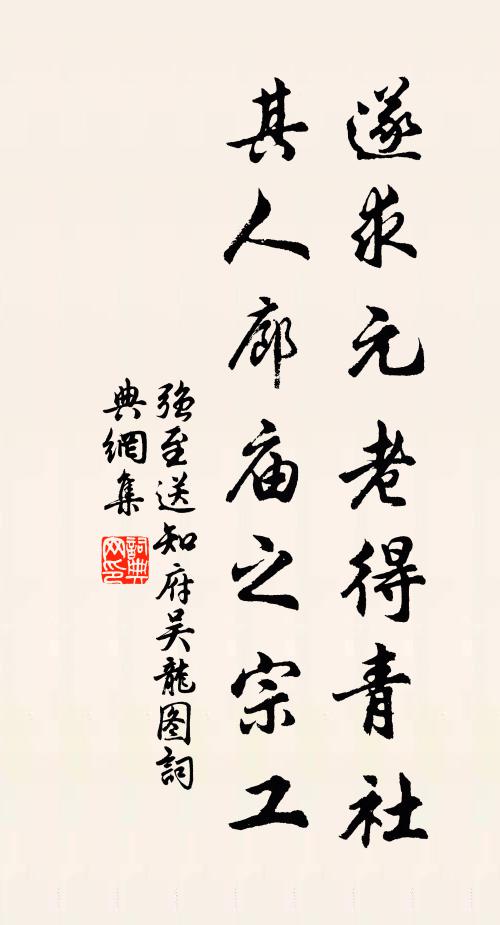 遂求元老得青社
其人廊庙之宗工
强至送知府吴龍图詞
典網集
詞典网印